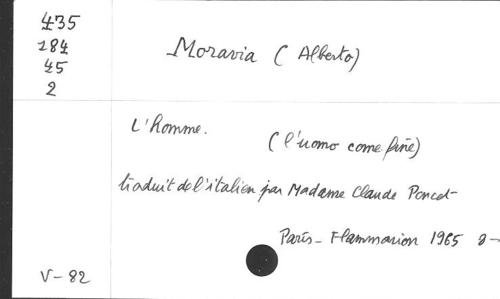 435
184
45
2
Moravia (Alberto)
L'homme.
(l'uomo come fine)
traduit de l'italien par Madame Claude Poncet
Paris - Flammarion 1965 8-
V-82